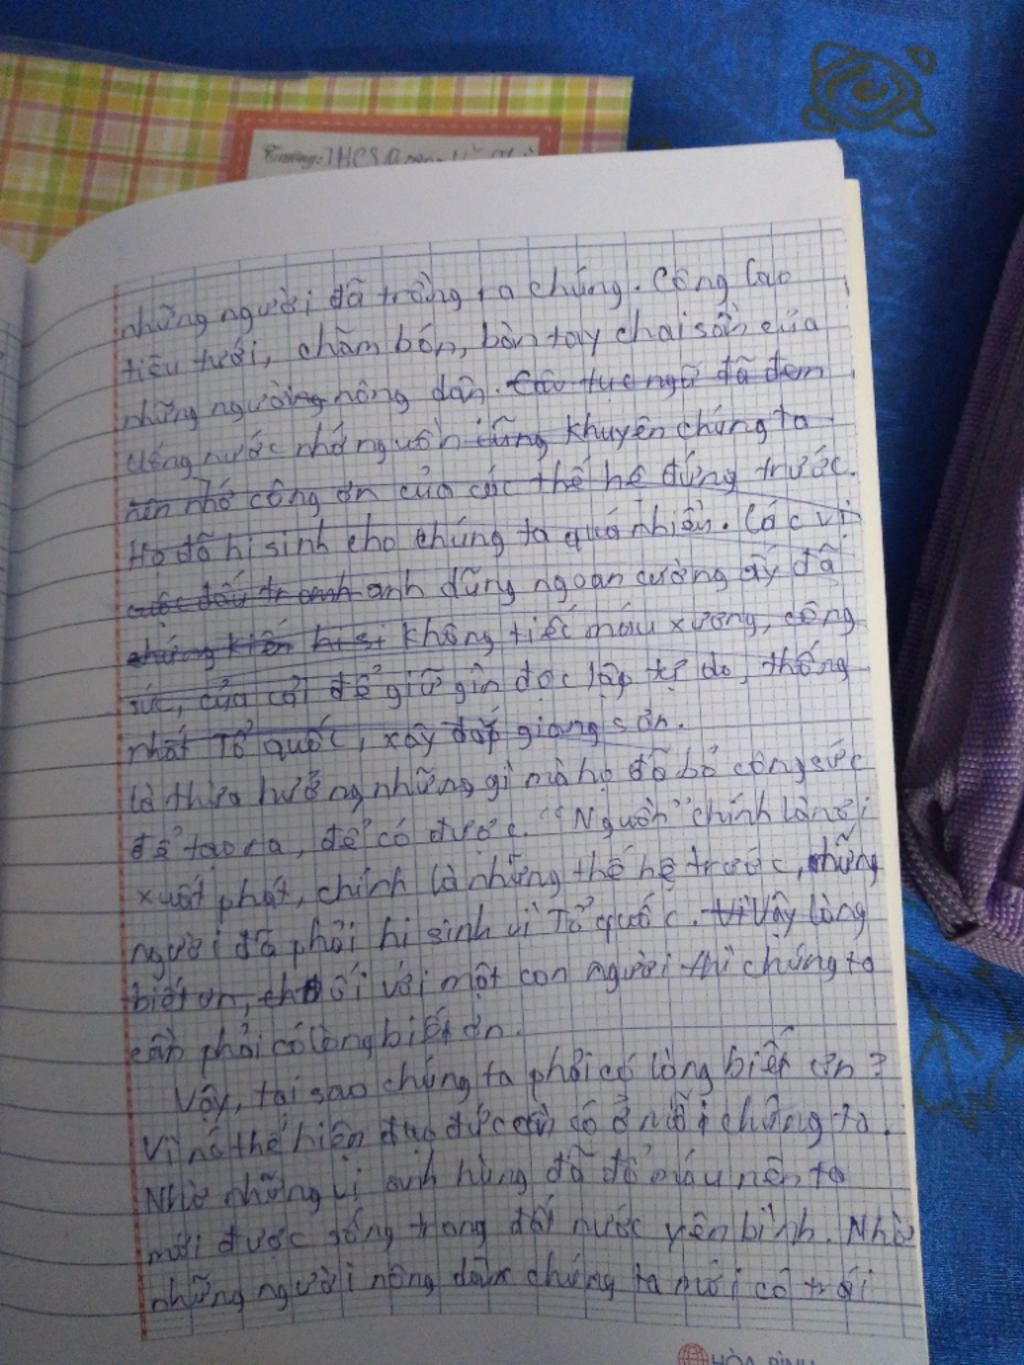 Trường: THCS
những người đã trồng ra chúng. Công lao
tiêu tưới, chăm bón, bàn tay chai sần của
những người nông dân. Câu tục ngữ đã đem
uống nước nhớ nguồn cũng khuyên chúng ta
nên nhớ công ơn của các thế hệ đứng trước.
Họ đã hi sinh cho chúng ta quá nhiều. Các vị
cuộc đấu tranh anh dũng ngoan cường ấy đã
chứng kiến hi si không tiếc máu xương, công
sức, của cải để giữ gìn độc lập tự do, thống
nhất Tổ quốc, xây đắp giang sơn.
là thừa hưởng những gì mà họ đã bỏ công sức
để tạo ra, để có được. "Nguồn" chính là nơi
xuất phát, chính là những thế hệ trước, những
người đã phải hi sinh vì Tổ quốc. Vì Vậy lòng
biết ơn, đối với một con người thì chúng ta
cần phải có lòng biết ơn.
Vậy, tại sao chúng ta phải có lòng biết ơn?
Vì nó thể hiện đạo đức cần có ở mỗi chúng ta.
Nhờ những vị anh hùng đã đổ máu nên ta
mới được sống trong đất nước yên bình. Nhờ
những người nông dân chúng ta mới có trái
HÒA BÌNH